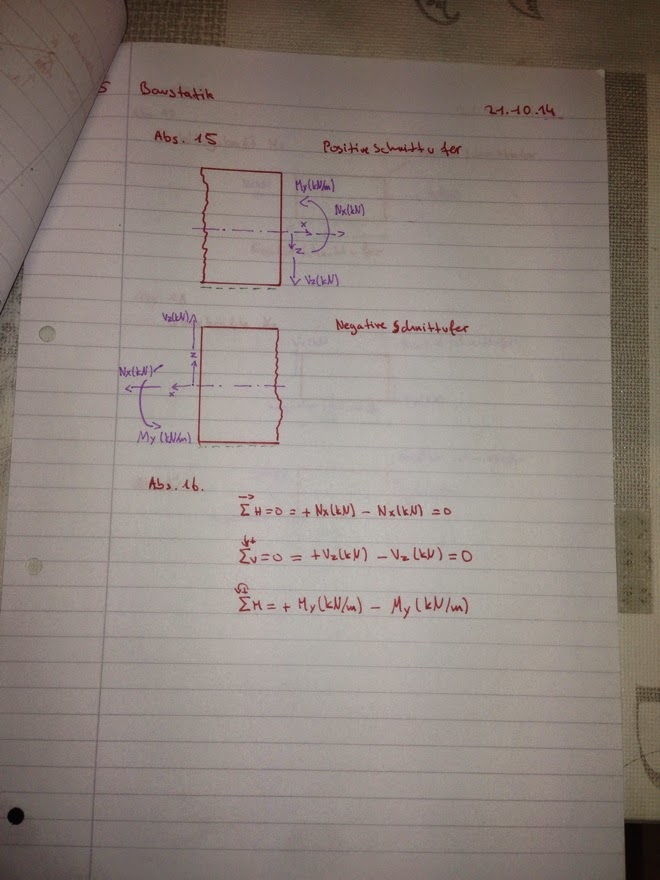 5 Baustatik
21.10.14
Abs. 15
Positive Schnittufer
My(kN/m)
Nx(kN)
x
z
Vz(kN)
Vz(kN)
Negative Schnittufer
z
Nx(kN)
x
My(kN/m)
Abs. 16.
ΣH=0 = + Nx(kN) - Nx(kN) = 0
ΣV=0 = +Vz(kN) - Vz(kN) = 0
ΣM = + My(kN/m) - My(kN/m)